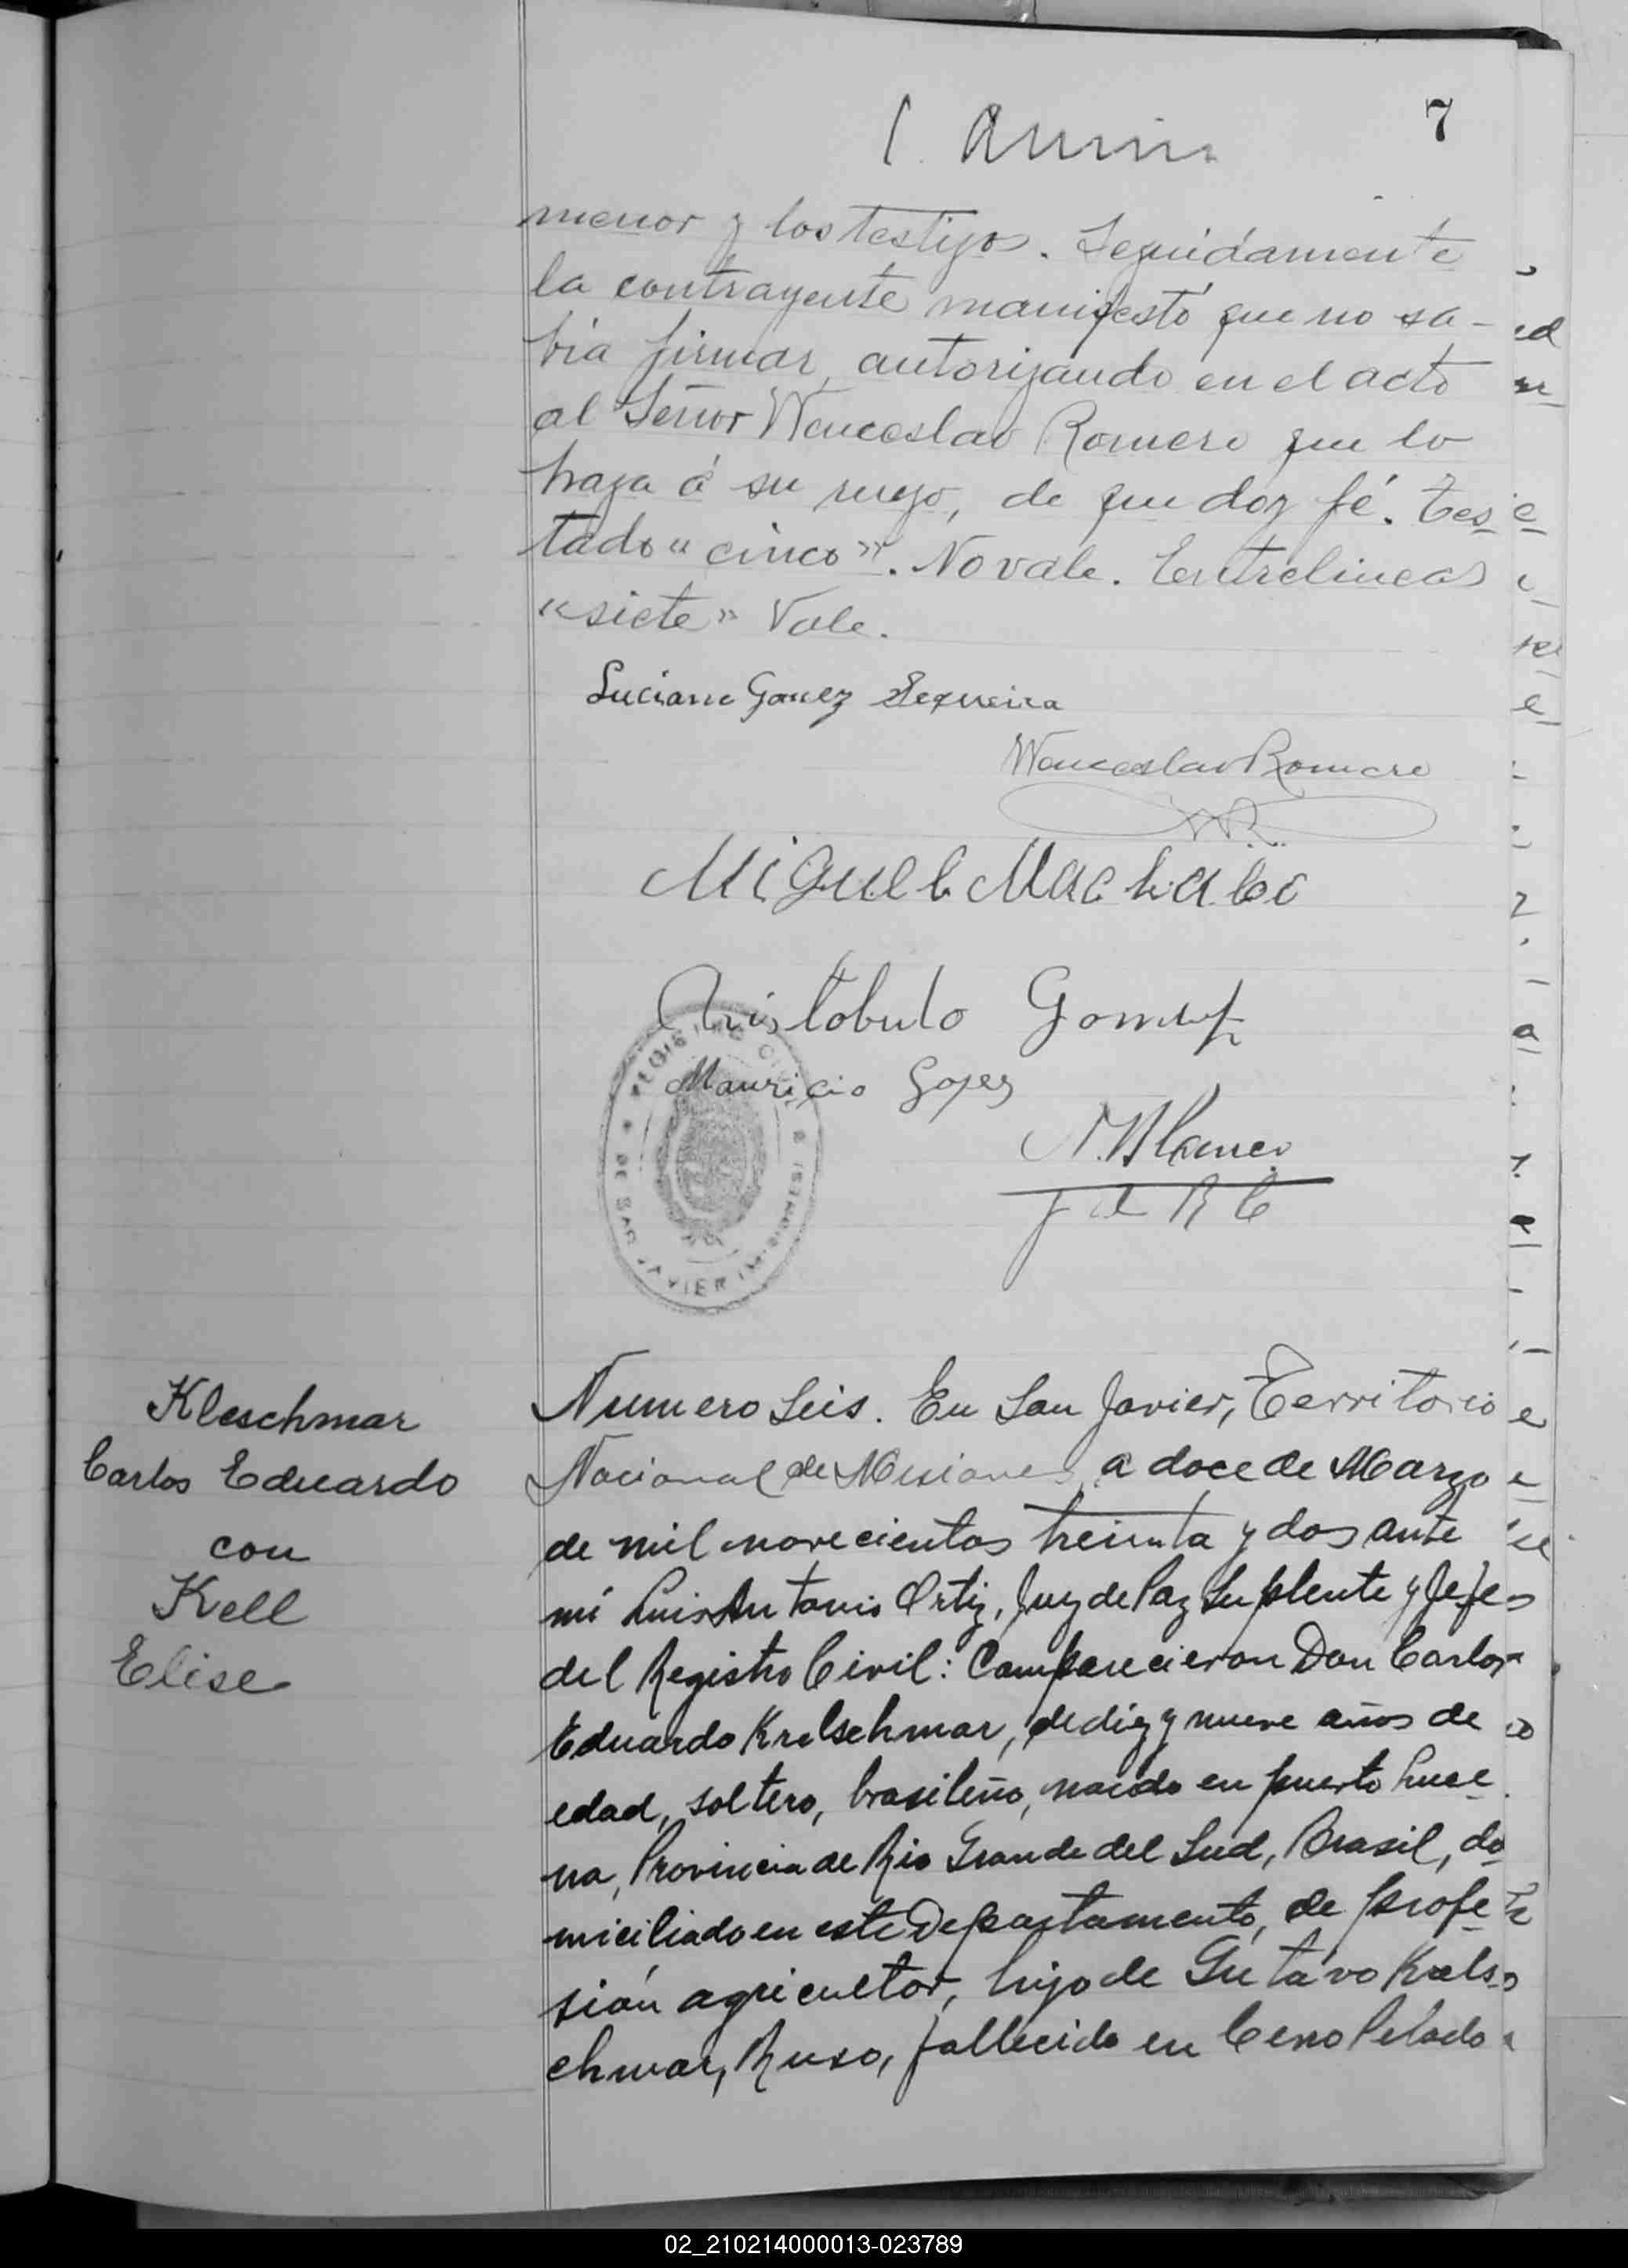 7
menor y los testigos. Seguidamente
la contrayente manifestó que no sa-
bia firmar, autorizando en el acto
al Señor Wenceslao Romero que lo
haga á su ruego, de que doy fé. Tes
tado "cinco". No vale. Entrelineas
"siete" Vale.
Luciano Gomez Sequeira
Wenceslao Romero
Miguel Machalo
Aristobulo Gomez
Mauricio Gopez
REGISTRO CIVIL
DE SAN JAVIER (MISIONES)
N. Blanco
J d R C
Kleschmar
Carlos Eduardo
con
Kell
Elise
Numero Seis. En San Javier, Territorio
Nacional de Misiones, a doce de Marzo
de mil novecientos treinta y dos ante
mí Luis Antonio Ortiz, Juez de Paz Suplente y Jefe
del Registro Civil: Comparecieron Don Carlos
Eduardo Krelschmar, de diez y nueve años de
edad, soltero, brasileño, nacido en puerto Luce
na, Provincia de Rio Grande del Sud, Brasil, do
miciliado en este Departamento, de profe
sión agricultor, hijo de Gutavo Krels
chmar, Ruso, fallecido en Cerro Pelado
02_210214000013-023789